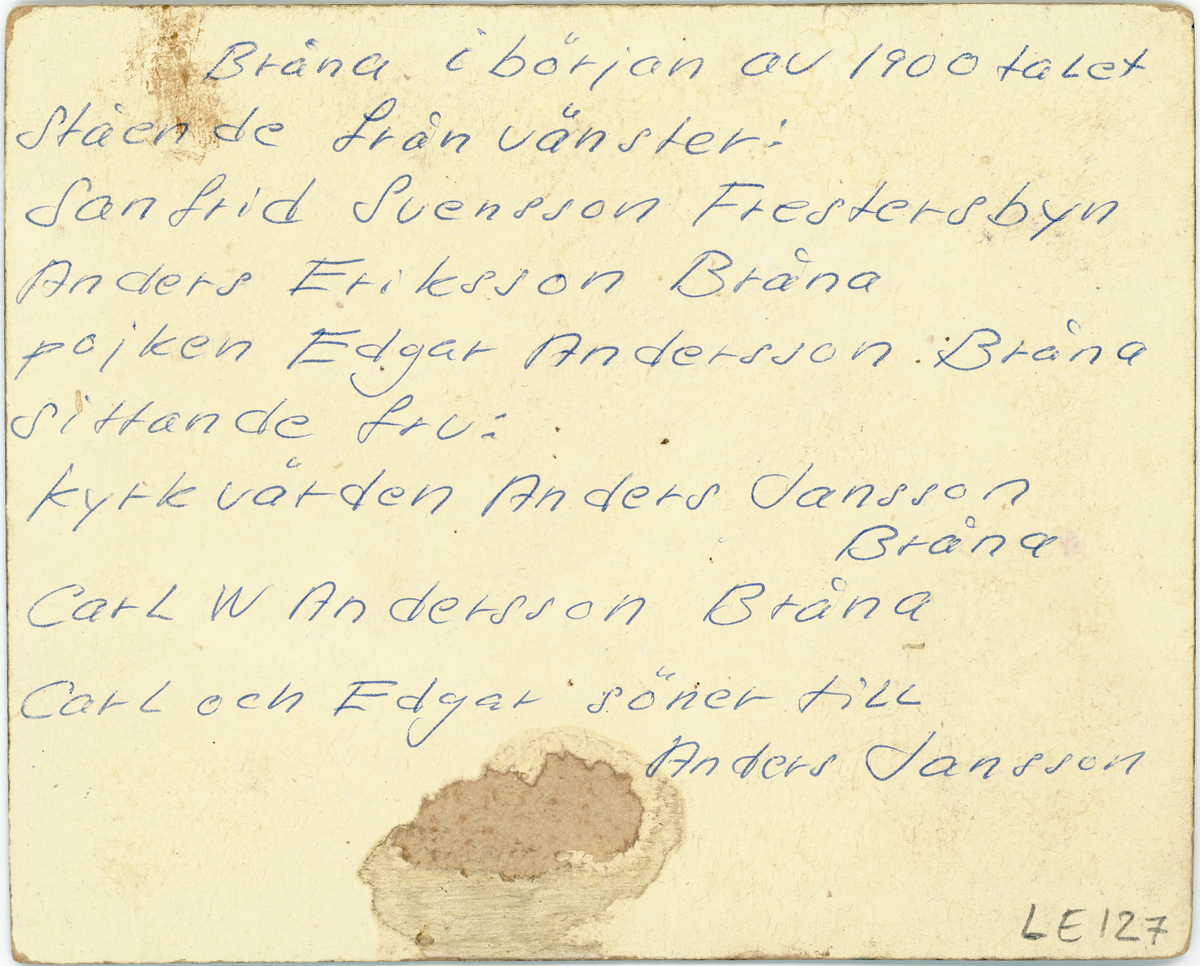 Bråna i början av 1900 talet
Stående från vänster:
Sanfrid Svensson Frestersbyn
Anders Eriksson Bråna
pojken Edgar Andersson. Bråna
Sittande fru:
kyrkvärden Anders Jansson
Bråna
Carl W Andersson Bråna
Carl och Edgar söner till
Anders Jansson
LE127